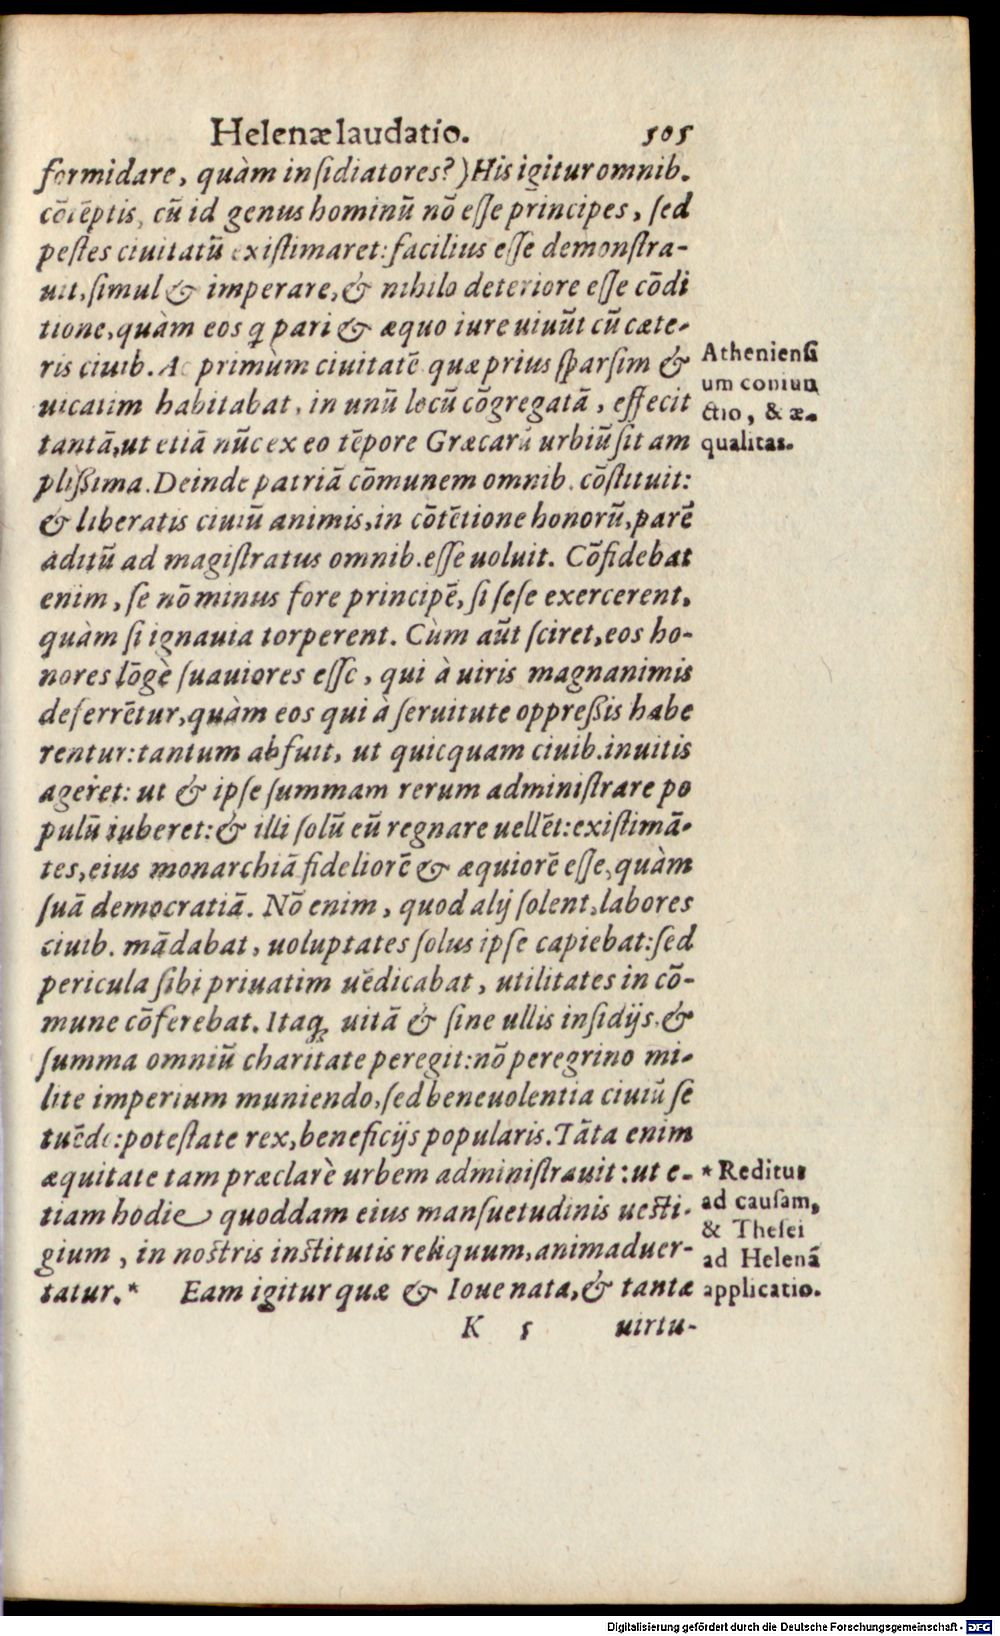 Helenæ laudatio. 505
formidare, quàm inſidiatores?) His igitur omnib.
cõtẽptis, cũ id genus hominũ nõ eſſe principes, ſed
peſtes ciuitatũ exiſtimaret: facilius eſſe demonſtra-
uit, ſimul & imperare, & nihilo deteriore eſſe cõdi
tione, quàm eos q̃ pari & æquo iure uiuũt cũ cæte-
ris ciuib. Ac primùm ciuitatẽ quæ prius ſparſim &
uicatim habitabat, in unũ locũ cõgregatã, effecit
tantã, ut etiã nũc ex eo tẽpore Græcarũ urbiũ ſit am
plißima. Deinde patriã cõmunem omnib. cõſtituit:
& liberatis ciuiũ animis, in cõtẽtione honorũ, parẽ
aditũ ad magiſtratus omnib. eſſe uoluit. Cõfidebat
enim, ſe nõ minus fore principẽ, ſi ſeſe exercerent,
quàm ſi ignauia torperent. Cùm aũt ſciret, eos ho-
nores lõgè ſuauiores eſſe, qui à uiris magnanimis
deferrẽtur, quàm eos qui à ſeruitute oppreßis habe
rentur: tantum abfuit, ut quicquam ciuib. inuitis
ageret: ut & ipſe ſummam rerum adminiſtrare po
pulũ iuberet: & illi ſolũ eũ regnare uellẽt: exiſtimã-
tes, eius monarchiã fideliorẽ & æquiorẽ eſſe, quàm
ſuã democratiã. Nõ enim, quod alij ſolent, labores
ciuib. mãdabat, uoluptates ſolus ipſe capiebat: ſed
pericula ſibi priuatim uẽdicabat, utilitates in cõ-
mune cõferebat. Itaq; uitã & ſine ullis inſidijs, &
ſumma omniũ charitate peregit: nõ peregrino mi-
lite imperium muniendo, ſed beneuolentia ciuiũ ſe
tuẽdo: poteſtate rex, beneficijs popularis. Tãta enim
æquitate tam præclarè urbem adminiſtrauit: ut e-
tiam hodie quoddam eius manſuetudinis ueſti-
gium, in noſtris inſtitutis reliquum, animaduer-
tatur.* Eam igitur quæ & Ioue nata, & tantæ
K 5 uirtu-
Athenienſi
um coniun
ctio, & æ-
qualitas.
* Reditus
ad cauſam,
& Theſei
ad Helenã
applicatio.
Digitalisierung gefördert durch die Deutsche Forschungsgemeinschaft - DFG